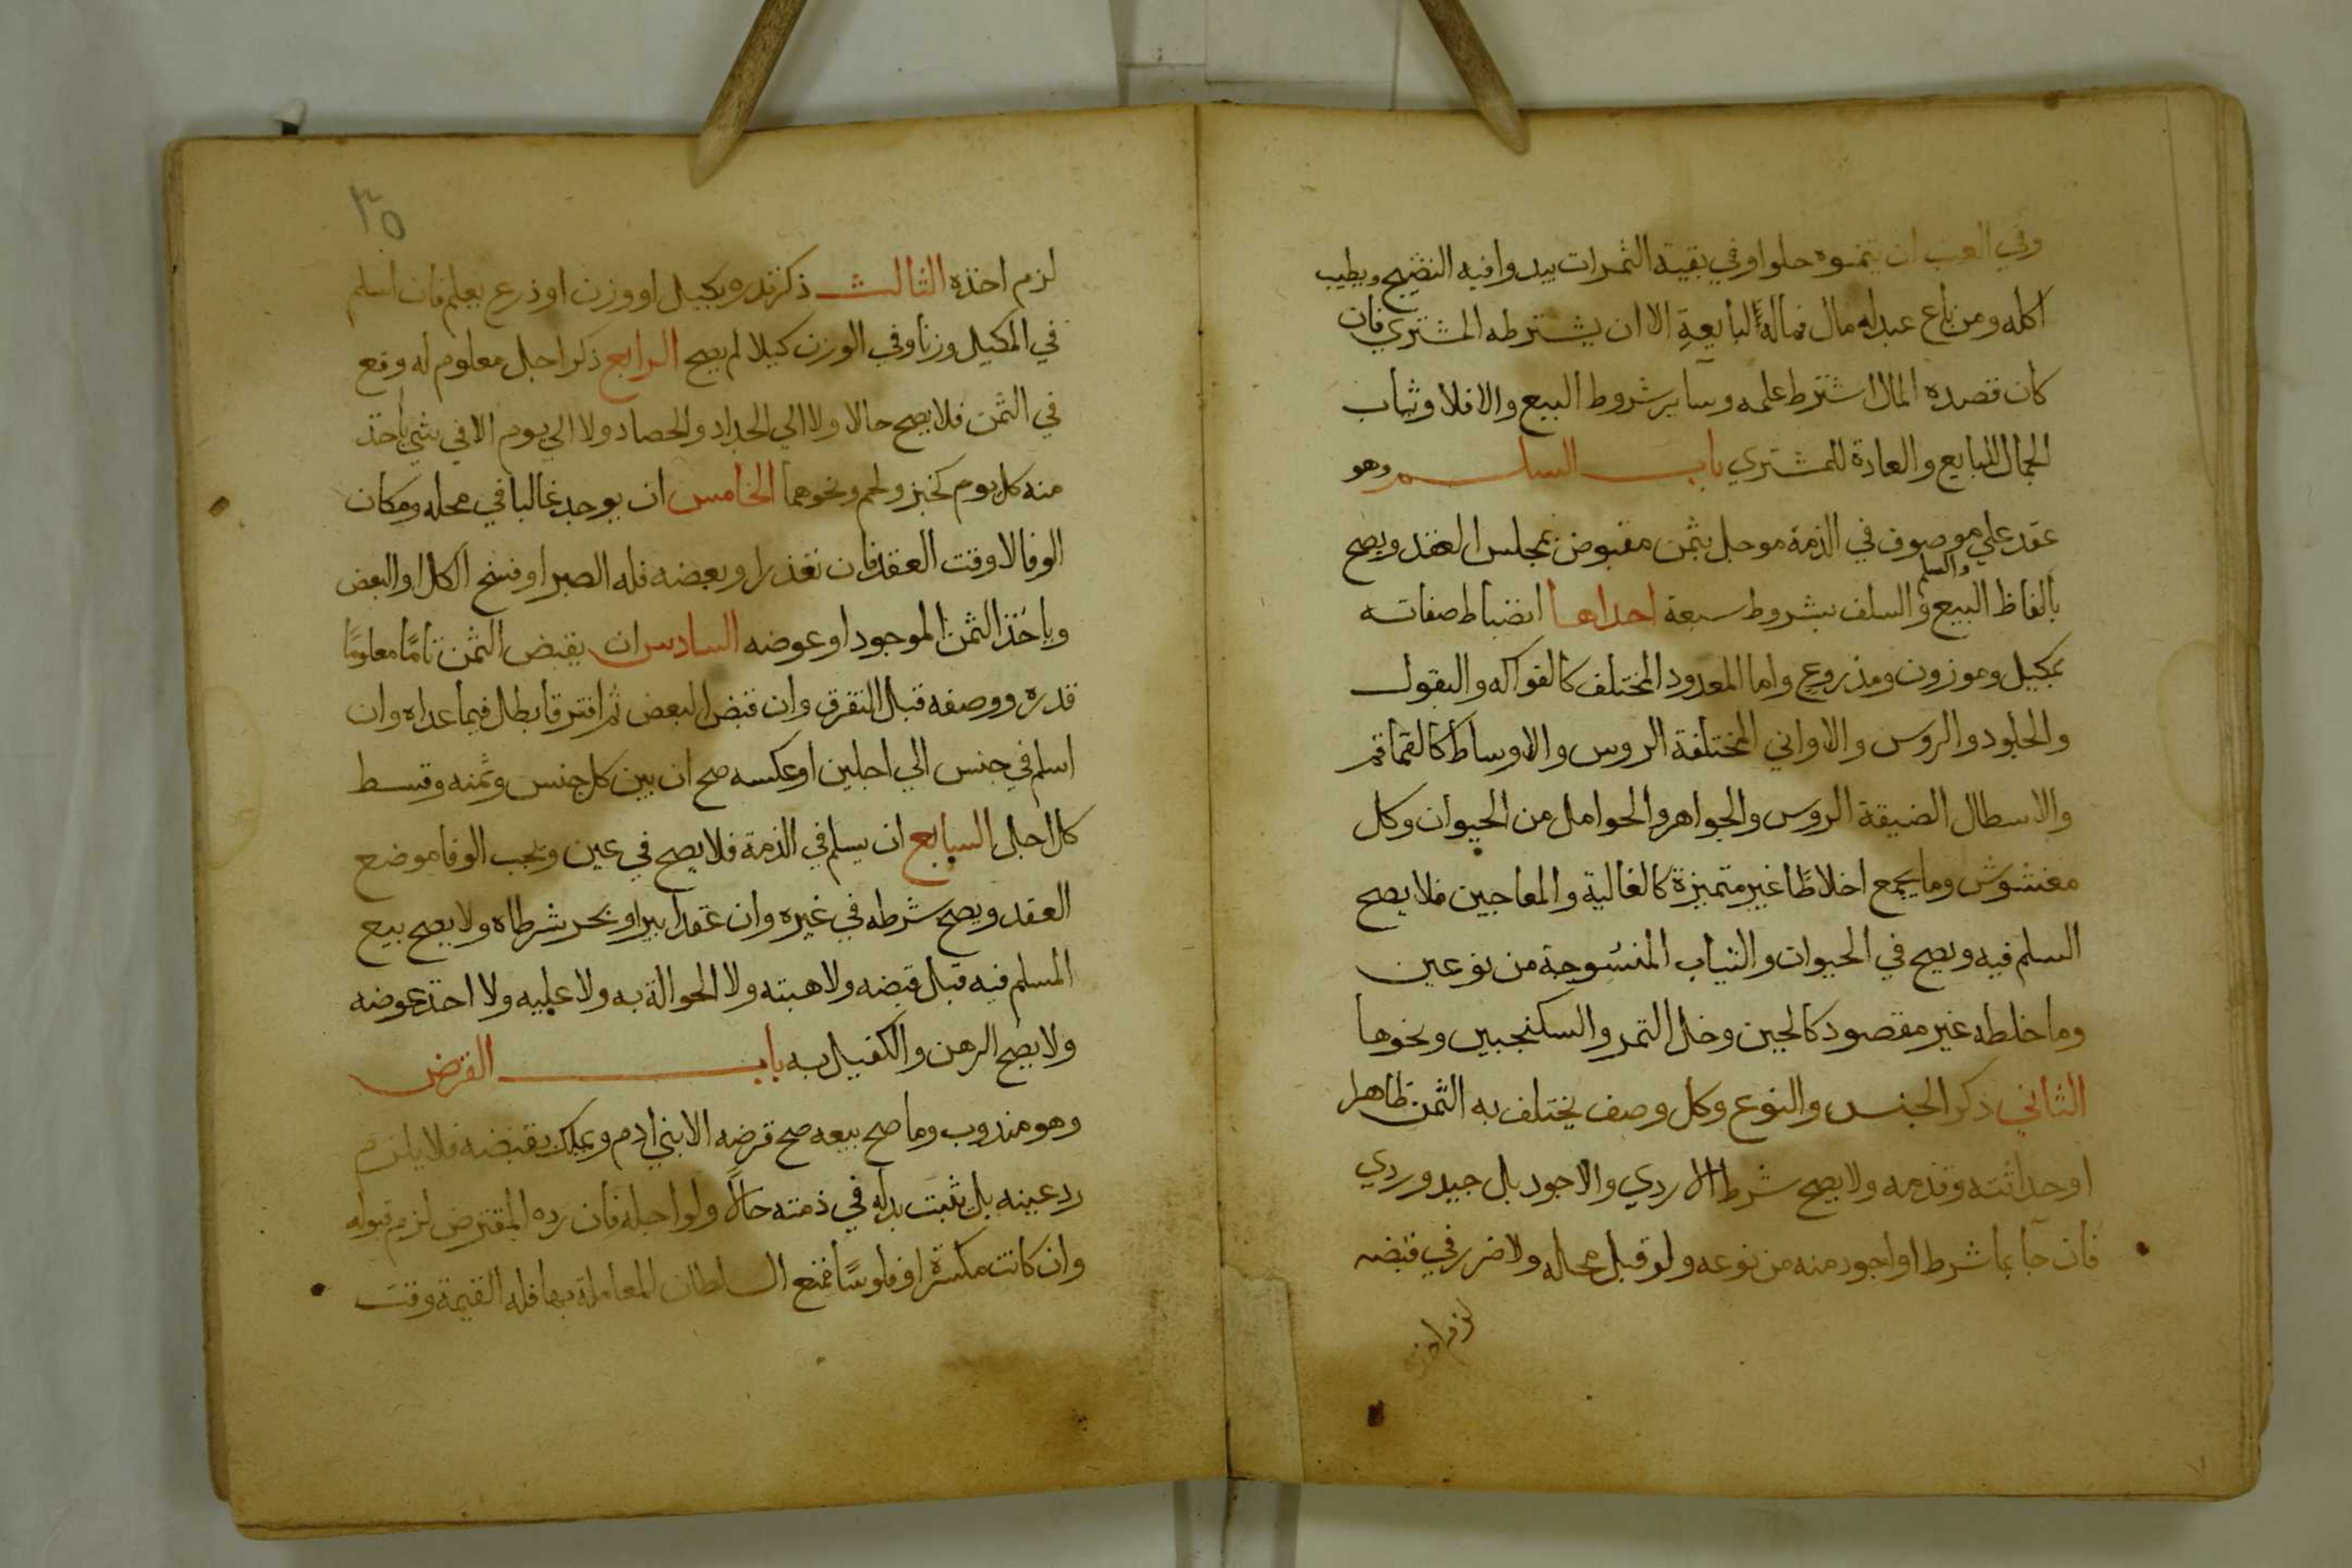 وفي العنب ان يتموه حلوا وفي بقية الثمرات يبدوا فيه النضيج ويطيب
اكله ومن باع عبدا له مال فماله لبايعه الا ان يشترطه المشتري فان
كان قصده المال اشترط علمه وساير شروط البيع والا فلا وثياب
الجمال للبايع والعادة للمشتري باب السلم وهو
عقد علي موصوف في الذمة موجل بثمن مقبوض بمجلس العقد ويصح
بالفاظ البيع والسلم والسلف بشروط سبعة احداها انضباط صفاته
بمكيل وموزون ومذروع واما المعدود المختلف كالفواكه والبقول
والجلود والروس والاواني المختلفة الروس والاوساط كالقماقم
والاسطال الضيقة الروس والجواهر والحوامل من الحيوان وكل
مغشوش وما يجمع اخلاطا غير متميزة كالغالية والمعاجين فلا يصح
السلم فيه ويصح في الحيوان والثياب المنسوجة من نوعين
وما خلطه غير مقصود كالجبن وخل التمر والسكنجبين ونحوها
الثاني ذكر الجنس والنوع وكل وصف يختلف به الثمن ظاهرا
او حداثته وقدمه ولا يصح شرط الاردي والاجود بل جيد وردي
فان جا بما شرط او اجود منه من نوعه ولو قبل محله ولا ضرر في قبضه
لزم اخذه
٣٥
لزم اخذه الثالث ذكر قدره بكيل او وزن او ذرع يعلم فان اسلم
في المكيل وزنا وفي الوزن كيلا لم يصح الرابع ذكر اجل معلوم له وقع
في الثمن فلا يصح حالا ولا الي الجداد والحصاد ولا الي يوم الا في شي ياخذ
منه كل يوم كخبز ولحم ونحوهما الخامس ان يوجد غالبا في محله ومكان
الوفا لا وقت العقد فان تعذر او بعضه فله الصبر او فسخ الكل او البعض
وياخذ الثمن الموجود او عوضه السادس ان يقبض الثمن تاما معلوما
قدره ووصفه قبل التفرق وان قبض البعض ثم افترقا بطل فيما عداه وان
اسلم في جنس الي اجلين او عكسه صح ان بين كل جنس وثمنه وقسط
كل اجل السابع ان يسلم في الذمة فلا يصح في عين ويجب الوفا موضع
العقد ويصح شرطه في غيره وان عقدا ببر او بحر شرطاه ولا يصح بيع
المسلم فيه قبل قبضه ولا هبته ولا الحوالة به ولا عليه ولا اخذ عوضه
ولا يصح الرهن والكفيل به باب القرض
وهو مندوب وما صح بيعه صح قرضه الا بني ادم ويملك بقبضه فلا يلزم
رد عينه بل يثبت بدله في ذمته حالا ولو اجله فان رده المقترض لزم قبوله
وان كانت مكسرة او فلوسا فمنع السلطان المعاملة بها فله القيمة وقت